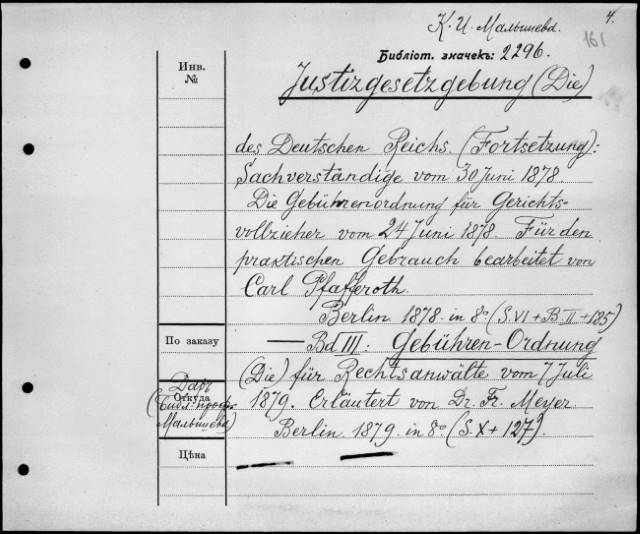 К. И. Малышева. 4.
161
Библіот. значекъ: 2296.
Инв.
№
Justizgesetzgebung (Die)
des Deutschen Reichs. (Fortsetzung):
Sachverständige vom 30 Juni 1878.
Die Gebührenordnung für Gerichts-
vollzieher vom 24 Juni 1878. Für den
praktischen Gebrauch bearbeitet von
Carl Pfafferoth.
Berlin 1878. in 8º (S. VI + B. II + 185)
По заказу
— Bd III: Gebühren-Ordnung
(Die) für Rechtsanwälte vom 7 Juli
Даръ
Откуда
(Библ. проф.
Малышева)
1879. Erläutert von Dr. Fr. Meyer.
Berlin. 1879. in 8º (S. X + 127).
Цѣна